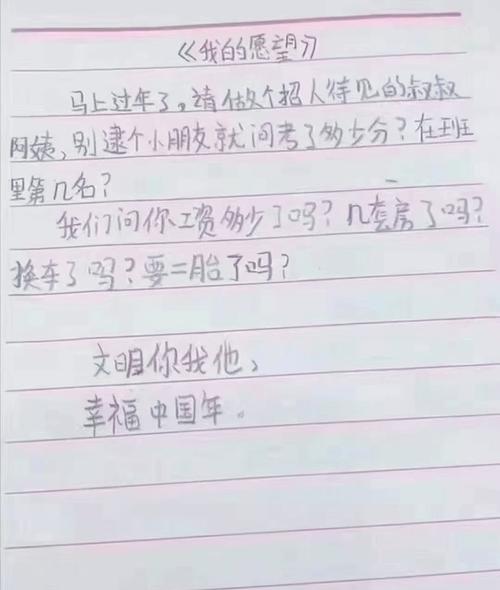 《我的愿望》
马上过年了，请做个招人待见的叔叔
阿姨，别逮个小朋友就问考了多少分？在班
里第几名？
我们问你工资多少了吗？几套房了吗？
换车了吗？要二胎了吗？
文明你我他，
幸福中国年。